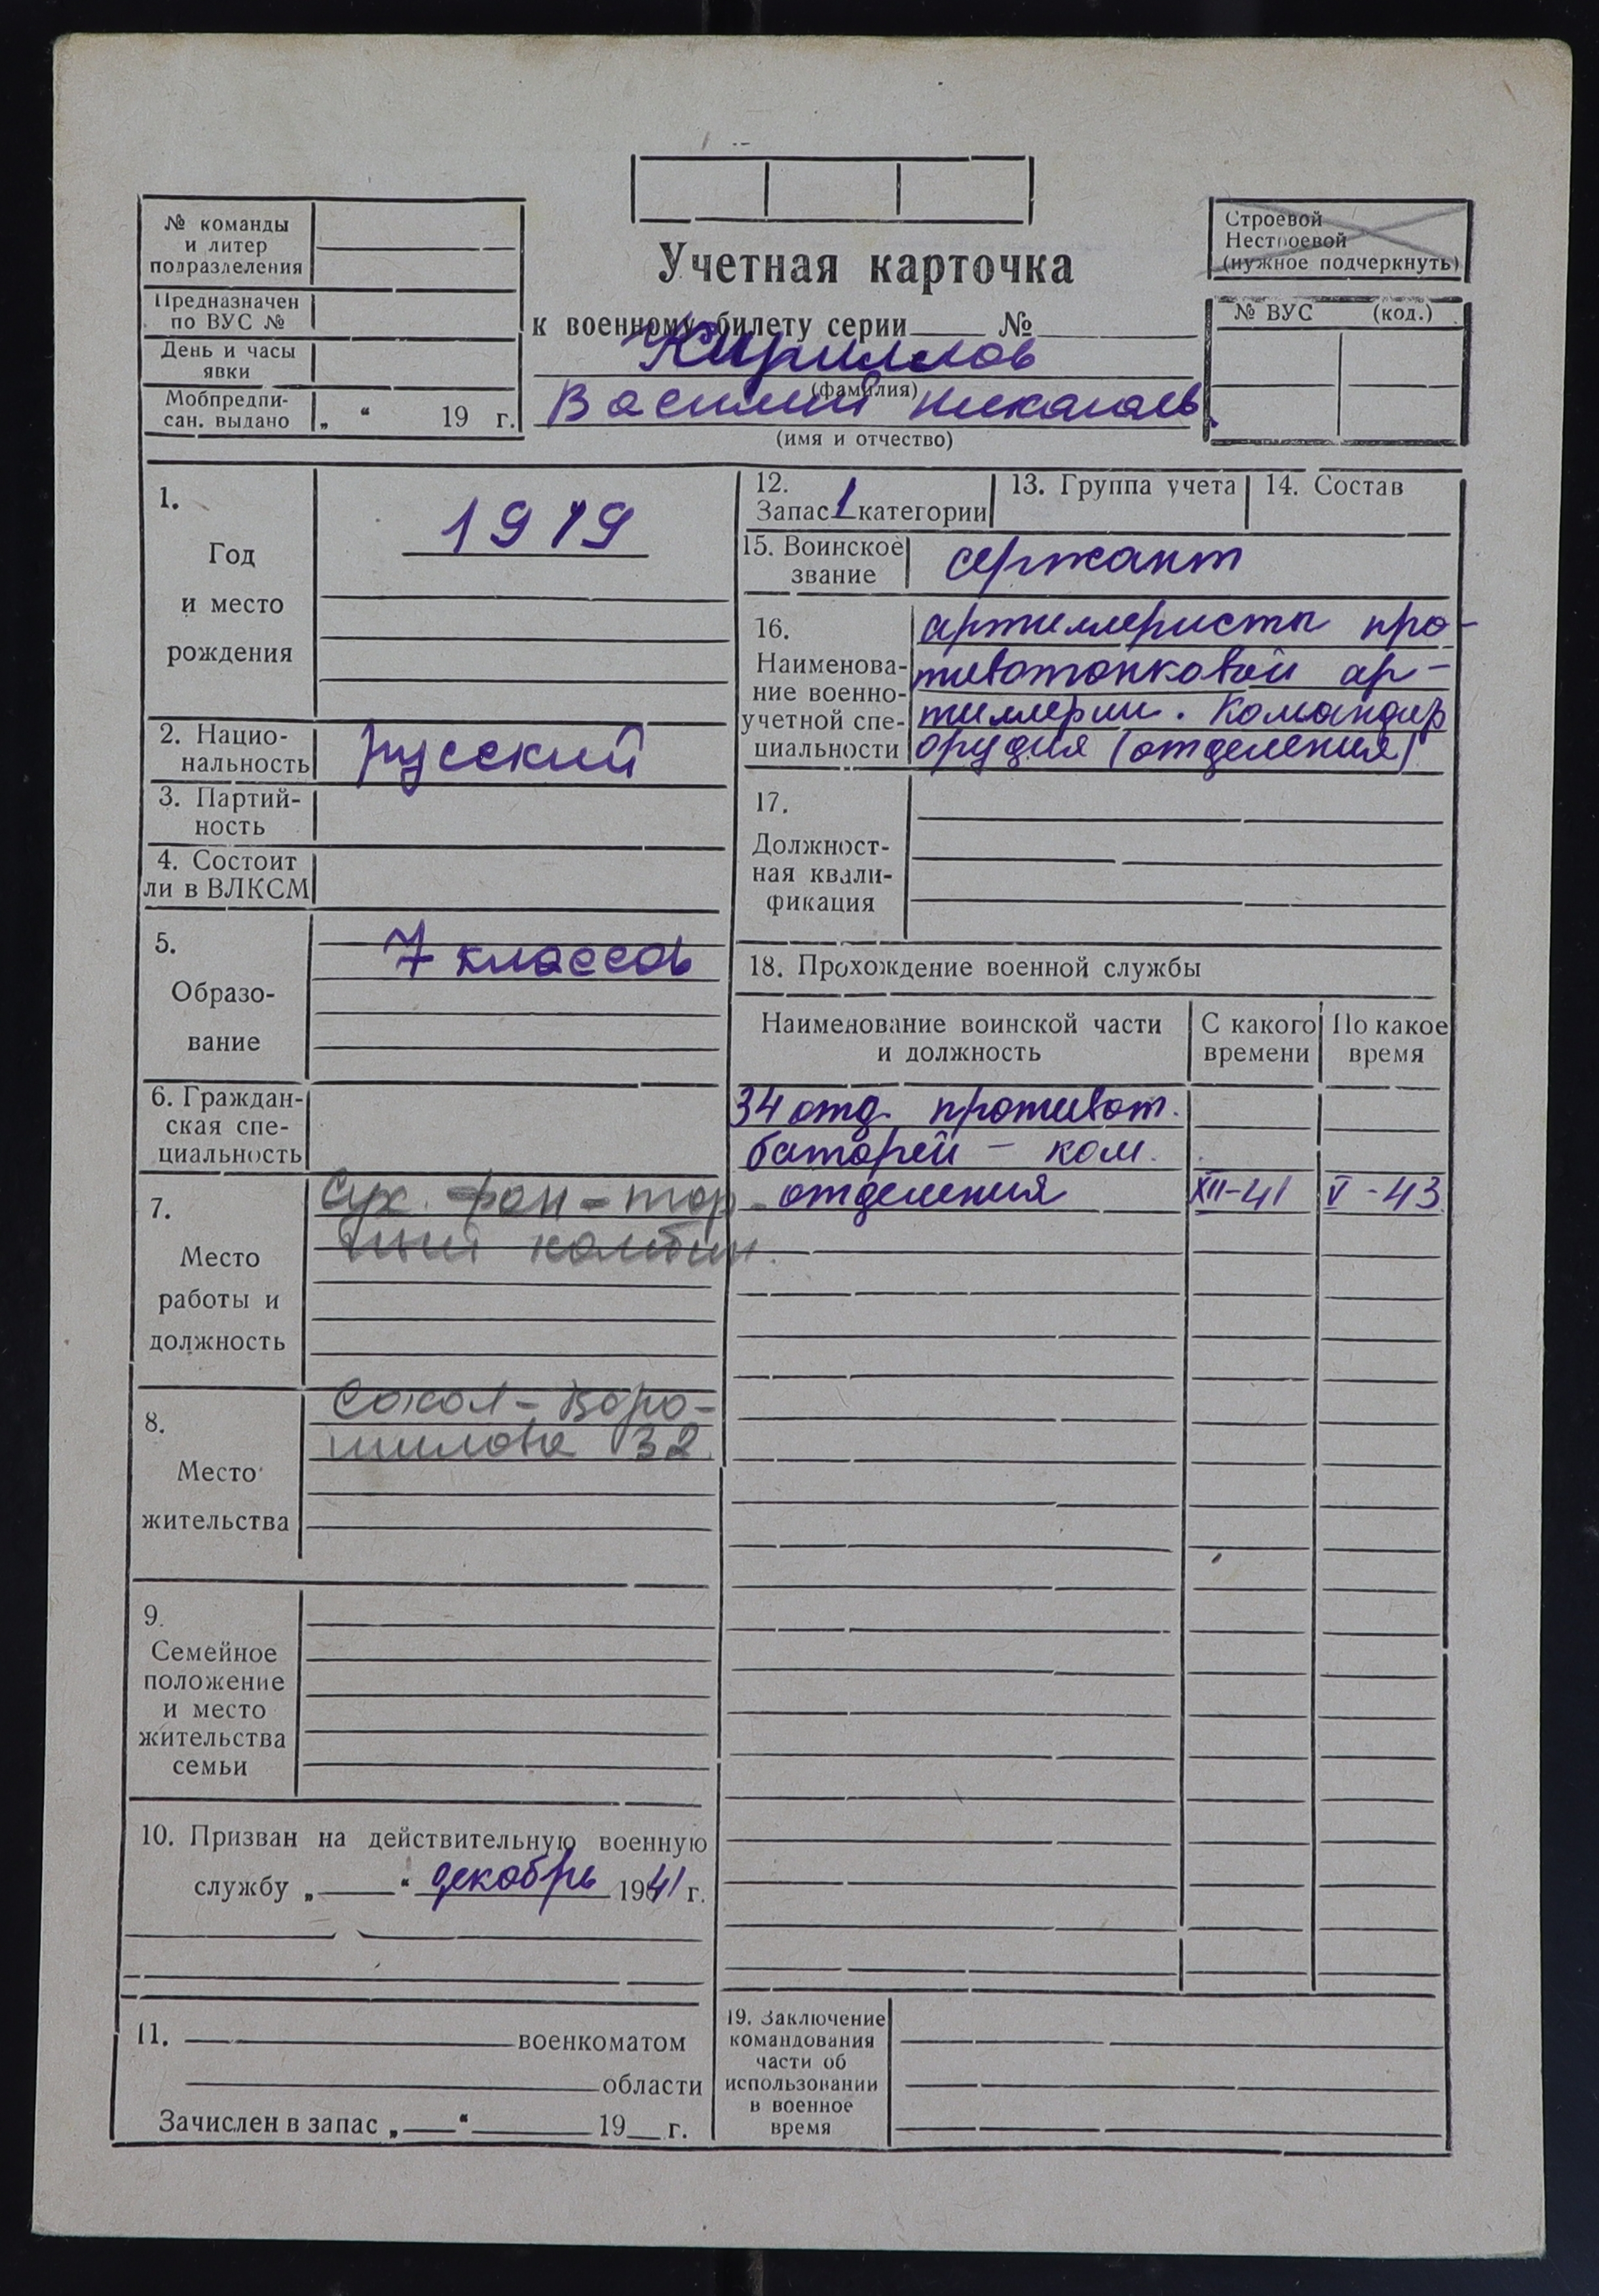 № команды
и литер
подразделения
Предназначен
по ВУС №
День и часы
явки
Мобпредпи-
сан. выдано „ “ 19 г.
Учетная карточка
к военному билету серии № 
Кириллов
(фамилия)
Василий Николаев.
(имя и отчество)
Строевой
Нестроевой
(нужное подчеркнуть)
№ ВУС (код.)
1.
Год
и место
рождения
1919
2. Нацио-
нальность
русский
3. Партий-
ность
4. Состоит
ли в ВЛКСМ
5.
Образо-
вание
7 классов
6. Граждан-
ская спе-
циальность
7.
Место
работы и
должность
Сух. рай-тор
комбин.
8.
Место
жительства
Сокол-Воро-
шилова 32
9.
Семейное
положение
и место
жительства
семьи
10. Призван на действительную военную
службу „ “ декабрь 1941 г.
11. военкоматом
области
Зачислен в запас „ “ 19 г.
12.
Запас 1 категории
13. Группа учета
14. Состав
15. Воинское
звание
сержант
16.
Наименова-
ние военно-
учетной спе-
циальности
артиллеристы про-
тивотанковой ар-
тиллерии. Командир
орудия (отделения)
17.
Должност-
ная квали-
фикация
18. Прохождение военной службы
Наименование воинской части
и должность
С какого
времени
По какое
время
34 отд. противот.
батарей - ком.
отделения XII-41 V-43
19. Заключение
командования
части об
использовании
в военное
время